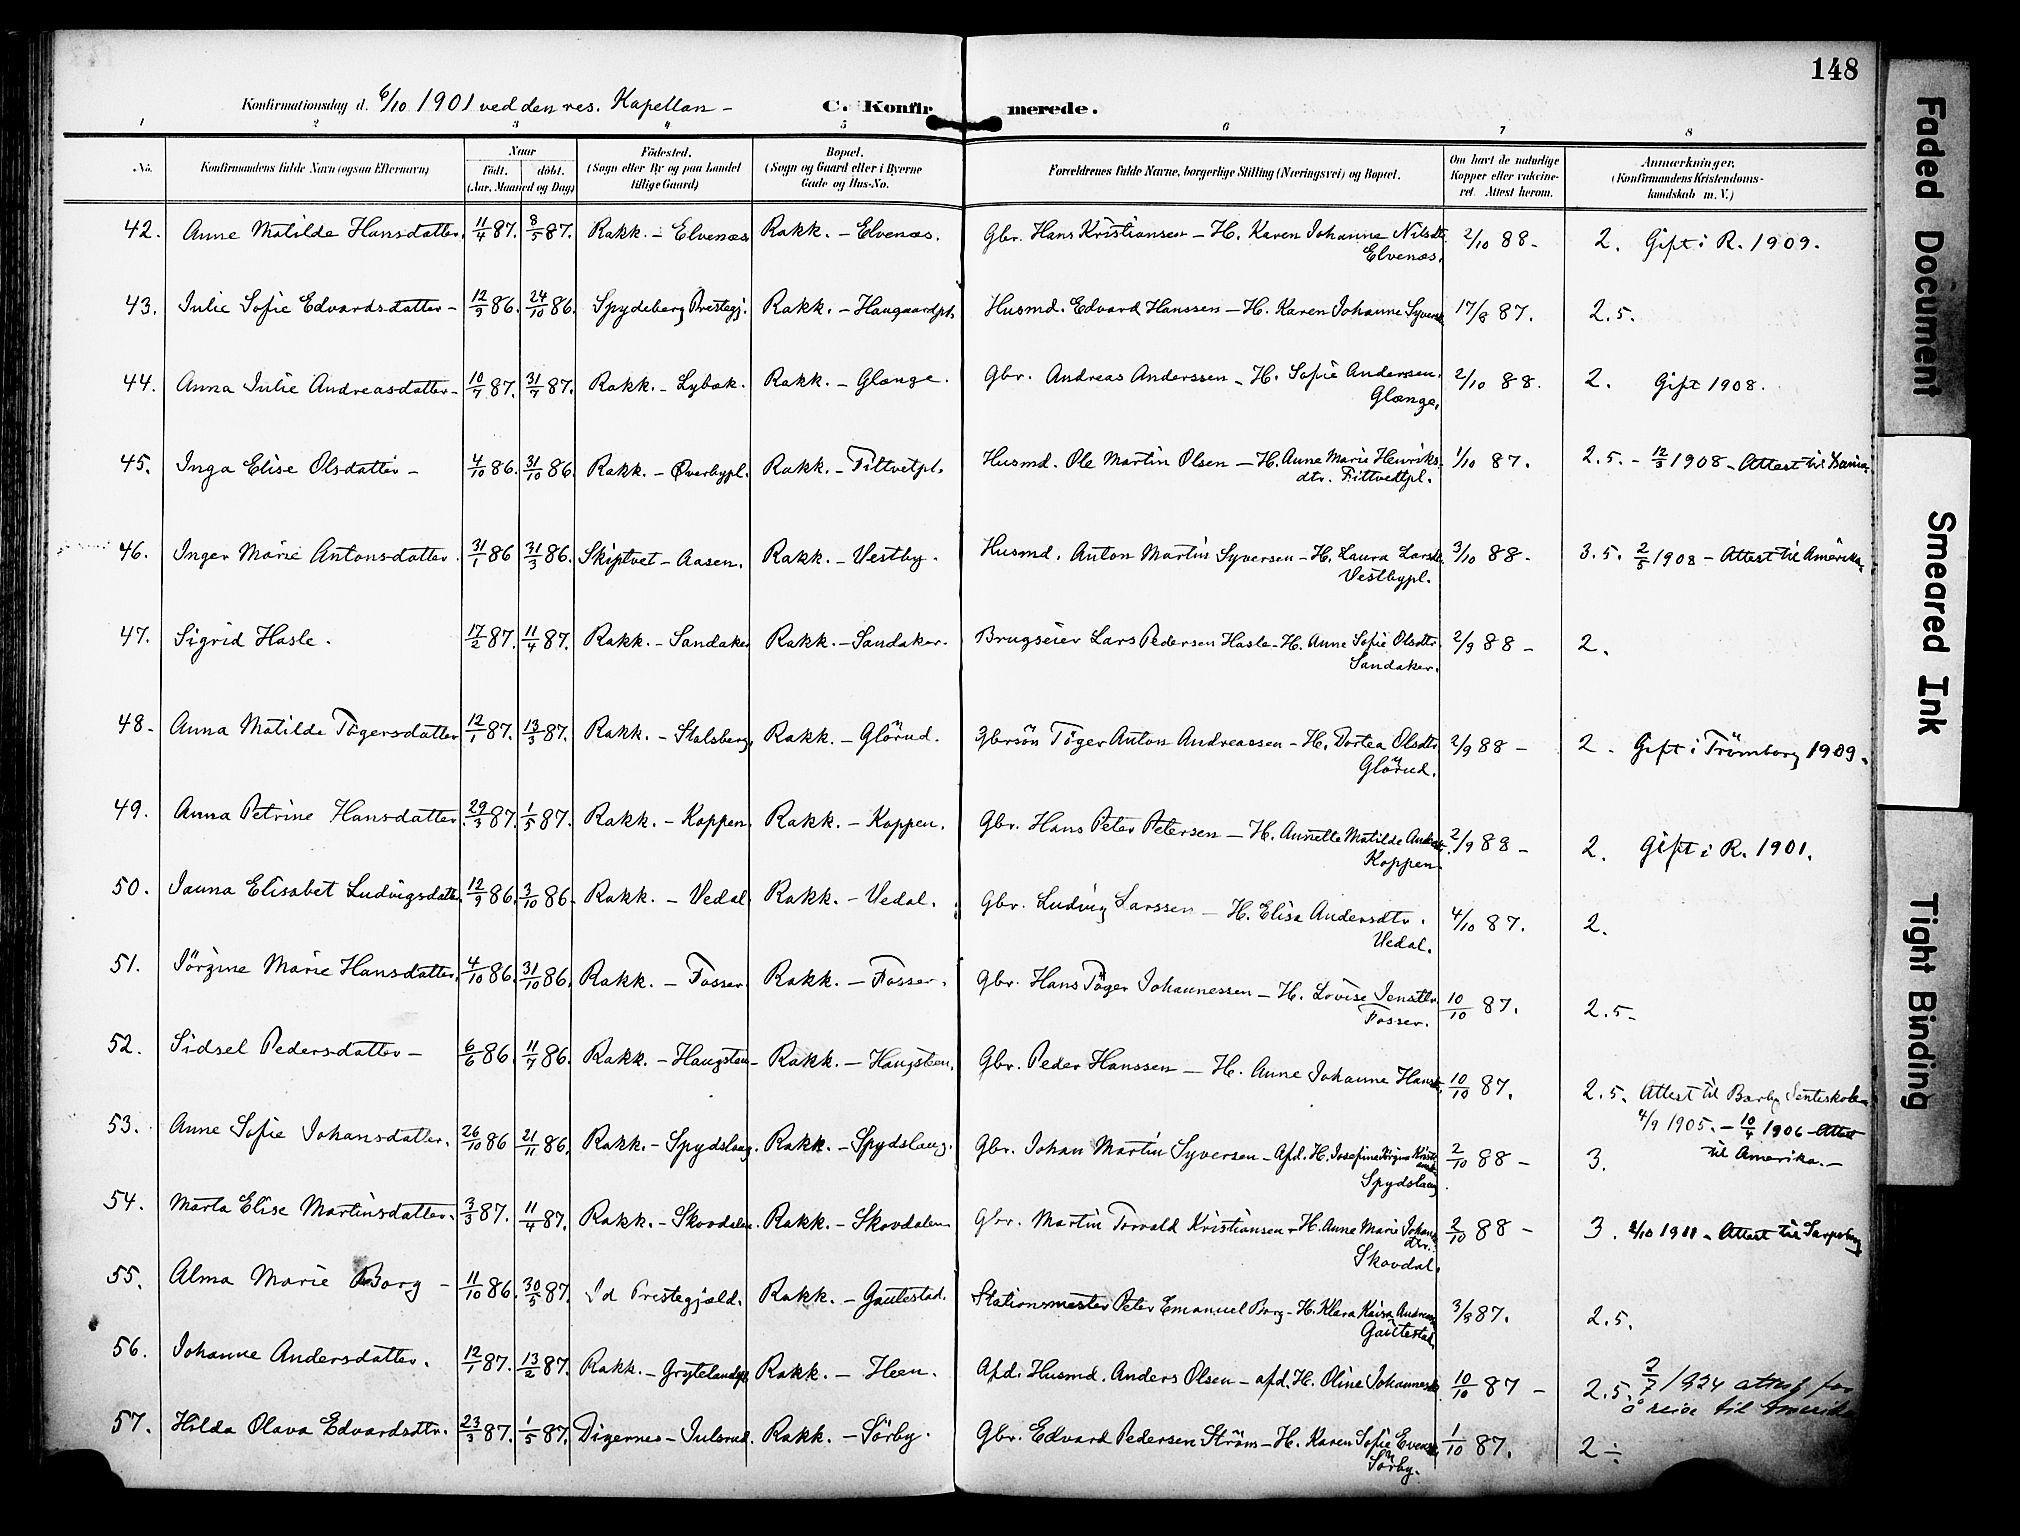 148
Konfirmationsdag d. 6/10 1901 ved den res. Kapellan – C. Konfirmerede.
1 2 3 4 5 6 7 8
No. Konfirmandens fulde Navn (ogsaa Efternavn) Naar født. døbt. (Aar, Maaned og Dag) Fødested. (Sogn eller By og paa Landet tillige Gaard) Bopæl. (Sogn og Gaard eller i Byerne Gade og Hus-No. Forældrenes fulde Navne, borgerlige Stilling (Næringsvei) og Bopæl. Om havt de naturlige Kopper eller vakcineret. Attest herom. Anmærkninger, (Konfirmandens Kristendomskundskab m. V.)
42. Anne Matilde Hansdatter. 11/4 87. 8/5 87. Rakk. – Elvenæs Rakk. – Elvenæs. Gbr. Hans Kristiansen – H. Karen Johanne Nilsdt. 2/10 88 – 2. Gift i R. 1909.
Elvenæs.
43. Julie Sofie Edvardsdatter – 12/9 86. 24/10 86. Spydeberg Prestegj. Rakk. – Haugaardpl. Husmd. Edvard Hanssen – H. Karen Johanne Syversdt. 17/8 87. 2.5.
44. Anna Julie Andreasdatter – 10/7 87. 31/7 87. Rakk. – Lybæk. Rakk. – Glænge. Gbr. Andreas Anderssen – H. Sofie Anderssen. 2/10 88. 2. Gift 1908.
Glænge.
45. Inga Elise Olsdatter – 4/10 86. 31/10 86. Rakk. – Øverbypl. Rakk. – Tittvetpl. Husmd. Ole Martin Olsen – H. Anne Marie Henriks- 1/10 87. 2.5. – 12/3 1908 – Attest til
dtr. Tittvedtpl.
46. Inger Marie Antonsdatter. 31/1 86 31/3 86. Skiptvet – Aasen. Rakk. – Vestby. Husmd. Anton Martin Syversen – H. Laura Larsdt. 3/10 88 – 3.5. 2/5 1908 – Attest til Amerika.
Vestbypl.
47. Sigrid Hasle. 17/2 87. 11/4 87. Rakk. – Sandaker Rakk. – Sandaker. Brugseier Lars Pedersen Hasle – H. Anne Sofie Olsdtr. 2/9 88 – 2.
Sandaker.
48. Anna Matilde Tögersdatter 12/1 87. 13/3 87. Rakk. – Stalsberg, Rakk. – Glörud. Gbrsön Töger Anton Andreassen – H. Dortea Olsdtr. 2/9 88 – 2. Gift i Trömborg 1909.
Glörud.
49. Anna Petrine Hansdatter 29/3 87. 1/5 87. Rakk. – Koppen. Rakk. – Koppen. Gbr. Hans Peter Petersen – H. Annette Matilde 2/9 88 – 2. Gift i R. 1901.
Koppen
50. Jauna Elisabet Ludvigsdatter. 12/9 86. 3/10 86. Rakk. – Vedal Rakk. – Vedal. Gbr. Ludvig Larssen – H. Elise Andersdtr. 4/10 87. 2.
Vedal.
51. Jörgine Marie Hansdatter. 4/10 86. 31/10 86. Rakk. – Fosser. Rakk. – Fosser. Gbr. Hans Töger Johannessen – H. Lovise Jensdtr. 10/10 87. 2.5 –
Fosser.
52. Sidsel Pedersdatter – 6/6 86. 11/7 86. Rakk. – Haugsteen – Rakk. – Haugsteen. Gbr. Peder Hanssen – H. Anne Johanne Hansdt. 10/10 87. 2.5. Attest til
4/9 1905. – 10/4 1906 – Attest
til Amerika. –
53. Anne Sofie Johansdatter. 26/10 86 21/11 86. Rakk. – Spydslaug. Rakk. – Spydslaug. Gbr. Johan Martin Syversen – Afd. H. Josefine 2/10 88 – 3.
Spydslaug.
54. Marta Elise Martinsdatter. 3/3 87. 11/4 87. Rakk. – Skovdalen. Rakk. – Skovdalen Gbr. Martin Torvald Kristiansen – H. Anne Marie Johans 2/10 88 – 3. 2/10 1911 – Attest til Sarpsborg
dtr.
Skovdal.
55. Alma Marie Borg – 11/10 86. 30/5 87. Id Prestegjæld. Rakk. – Gautestad. Stationsmester Peter Emanuel Borg – H. Klara 3/9 87. 2.5.
Gautestad
56. Johanne Andersdatter. 12/1 87. 13/2 87. Rakk. – Grytelandpl. Rakk. – Heen. Afd. Husmd. Anders Olsen – afd. H. Oline Johannesdt. 10/10 87 – 2.5. 3/7 1924 attest for
å reise til Amerika
57. Hilda Olava Edvardsdtr. 23/3 87. 1/5 87. Digernes – Julsrud. Rakk. – Sörby. Gbr. Edvard Pedersen Ström – H. Karen Sofie Evensdt. 1/10 87. 2 ÷
Sörby.
Faded Document
Smeared Ink
Tight Binding